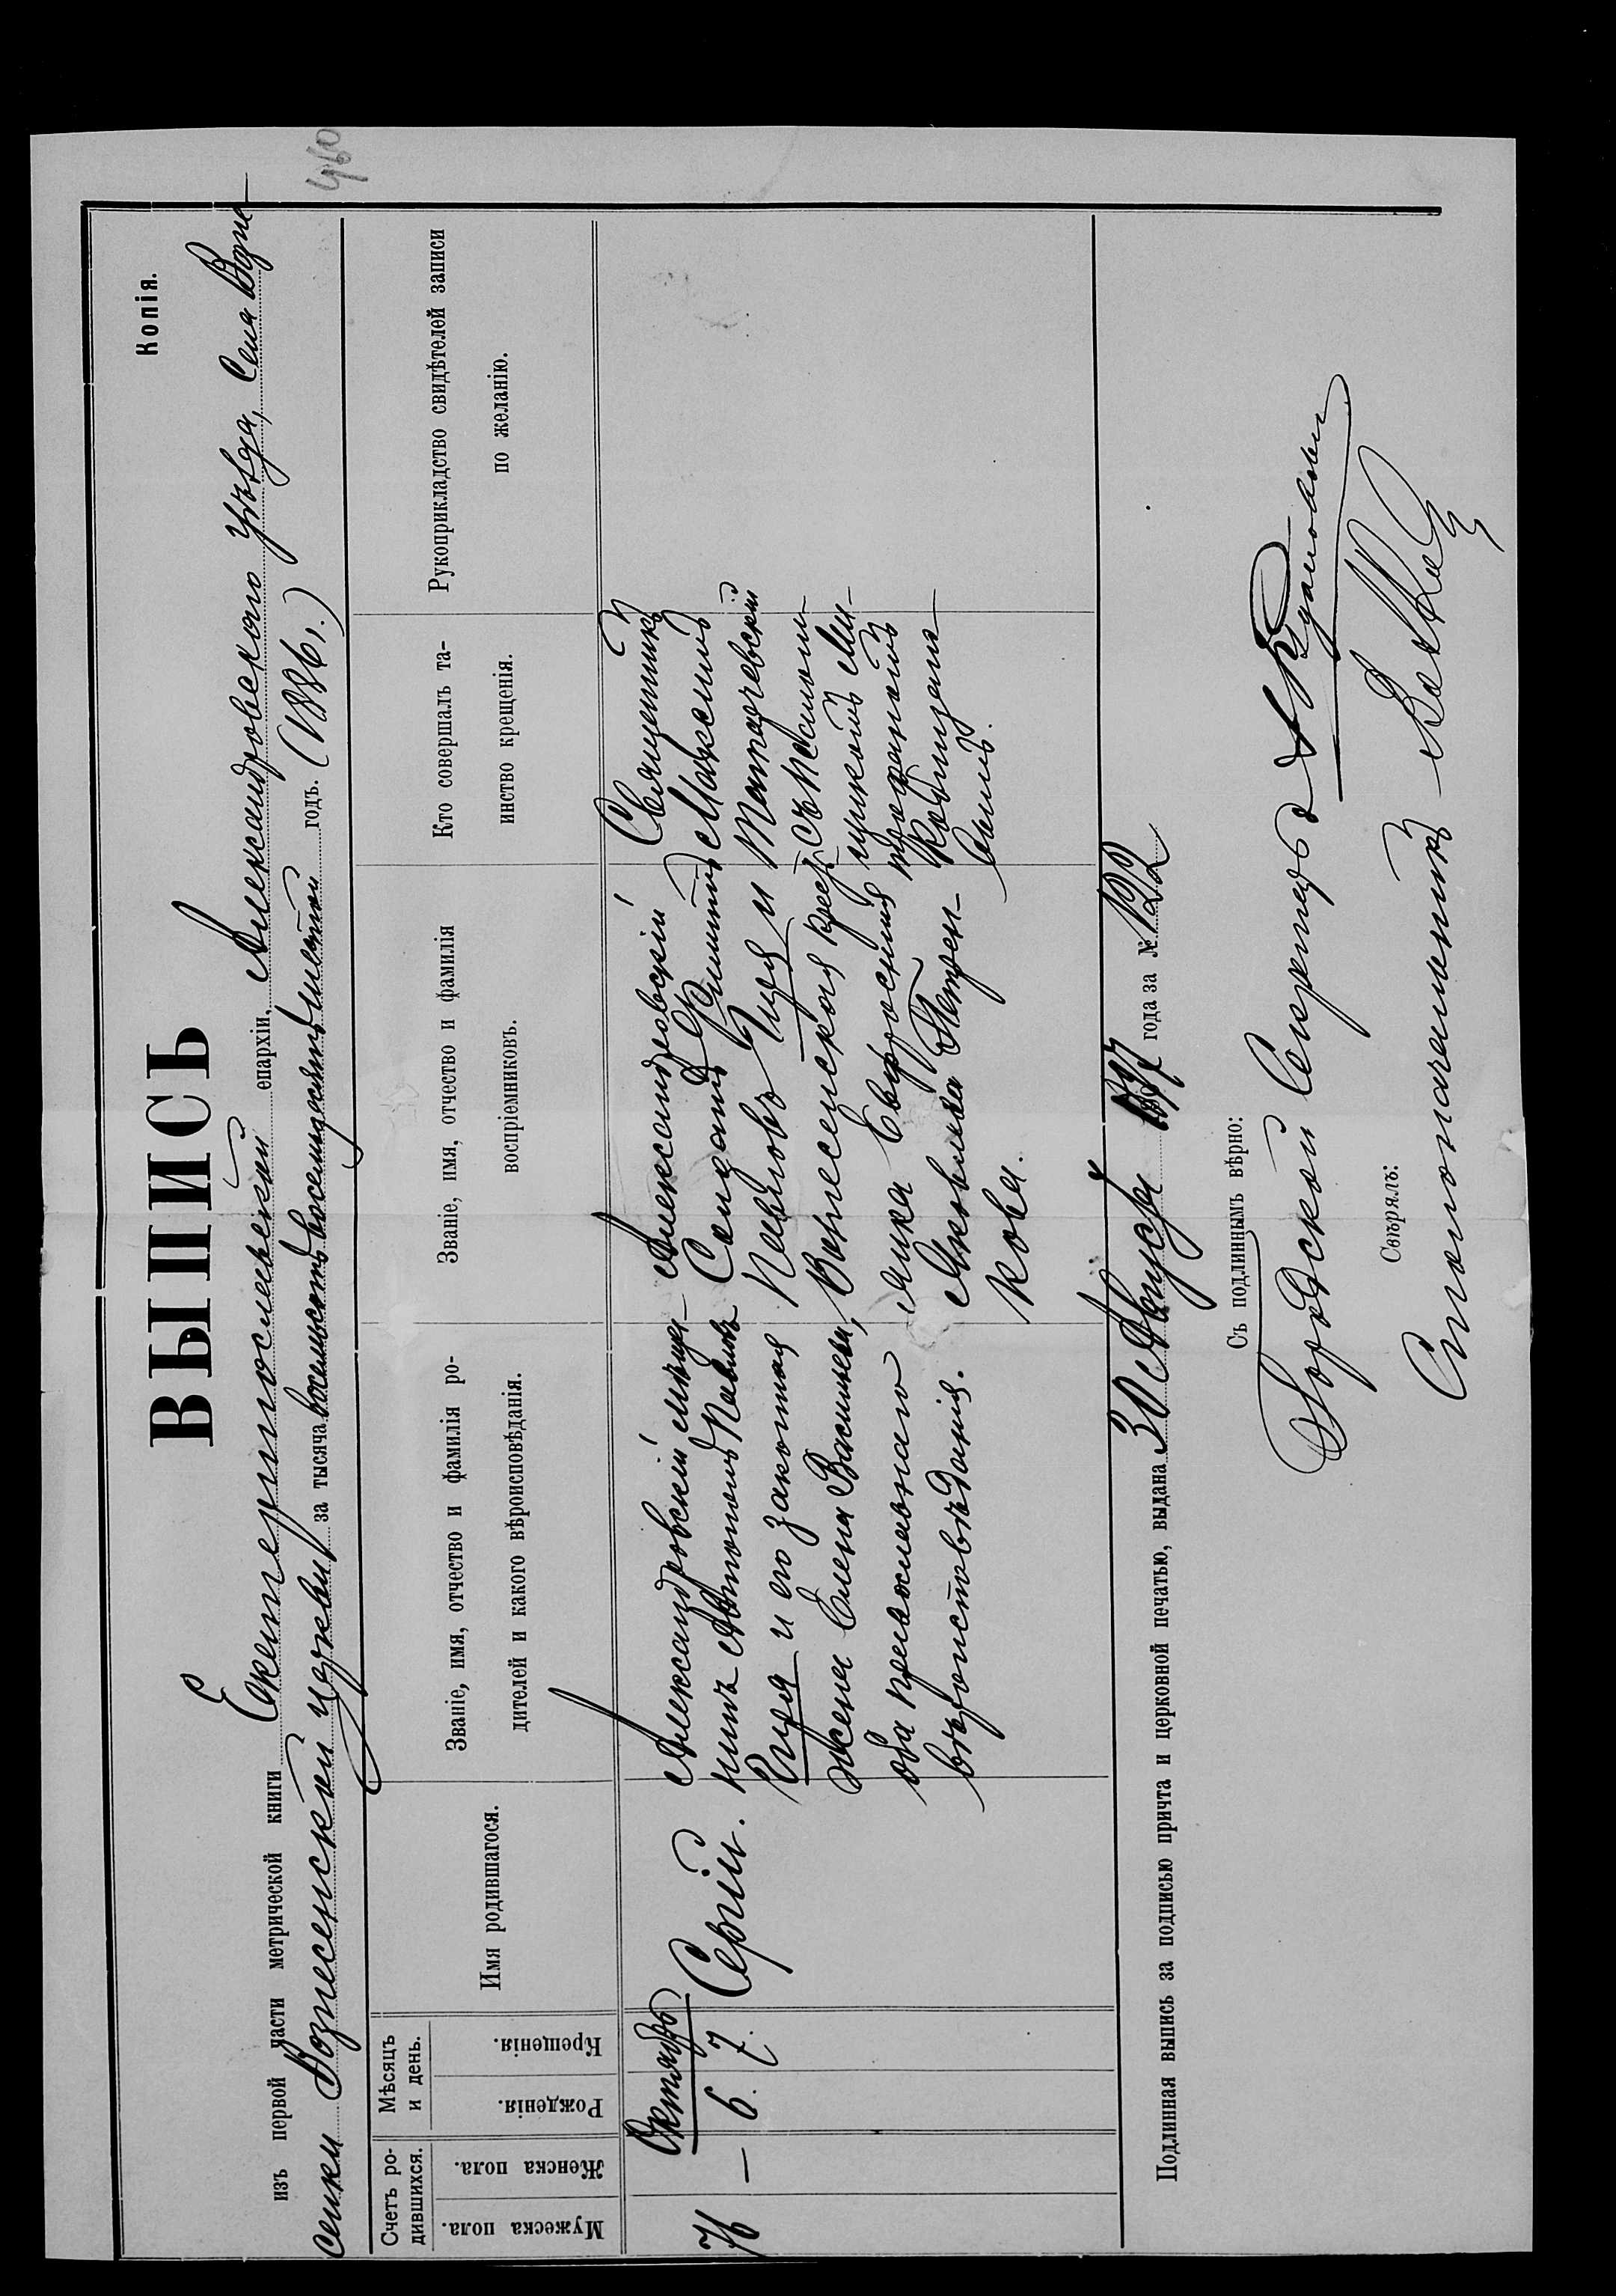 Копія.
460
ВЫПИСЬ
изъ первой части метрической книги Екатеринославской епархіи, Александровского уѣзда, села Возне-
сенки Вознесенской церкви за тысяча восемьсотъ восемьдесятъ шестой годъ. (1886 г.)
Счетъ ро-
дившихся.
Мужеска пола.
Женска пола.
Мѣсяцъ
и день.
Рожденія.
Крещенія.
Имя родившагося.
Званіе, имя, отчество и фамилія ро-
дителей и какого вѣроисповѣданія.
Званіе, имя, отчество и фамилія
воспріемниковъ.
Кто совершалъ та-
инство крещенія.
Рукоприкладство свидѣтелей записи
по желанію.
Октябрь
— 6. 7.
Сергій.
Александровскій мѣща-
нинъ Антонъ Павловъ
и его законная
жена Елена Васильева,
оба православнаго
вѣроисповѣданія.
Александровскій
Солдатъ Филиппъ
Павловъ и
Вознесенская крест-
янка Евфросинія
Яковлева Петрен-
кова.
Священникъ
Максимъ
съ псалом-
щикомъ Ми-
трофаномъ
Подлинная выпись за подписью причта и церковной печатью, выдана 30 Августа 1897 года за № 122
Съ подлиннымъ вѣрно:
Городской Секретарь
Свѣрялъ:
Столоначальникъ